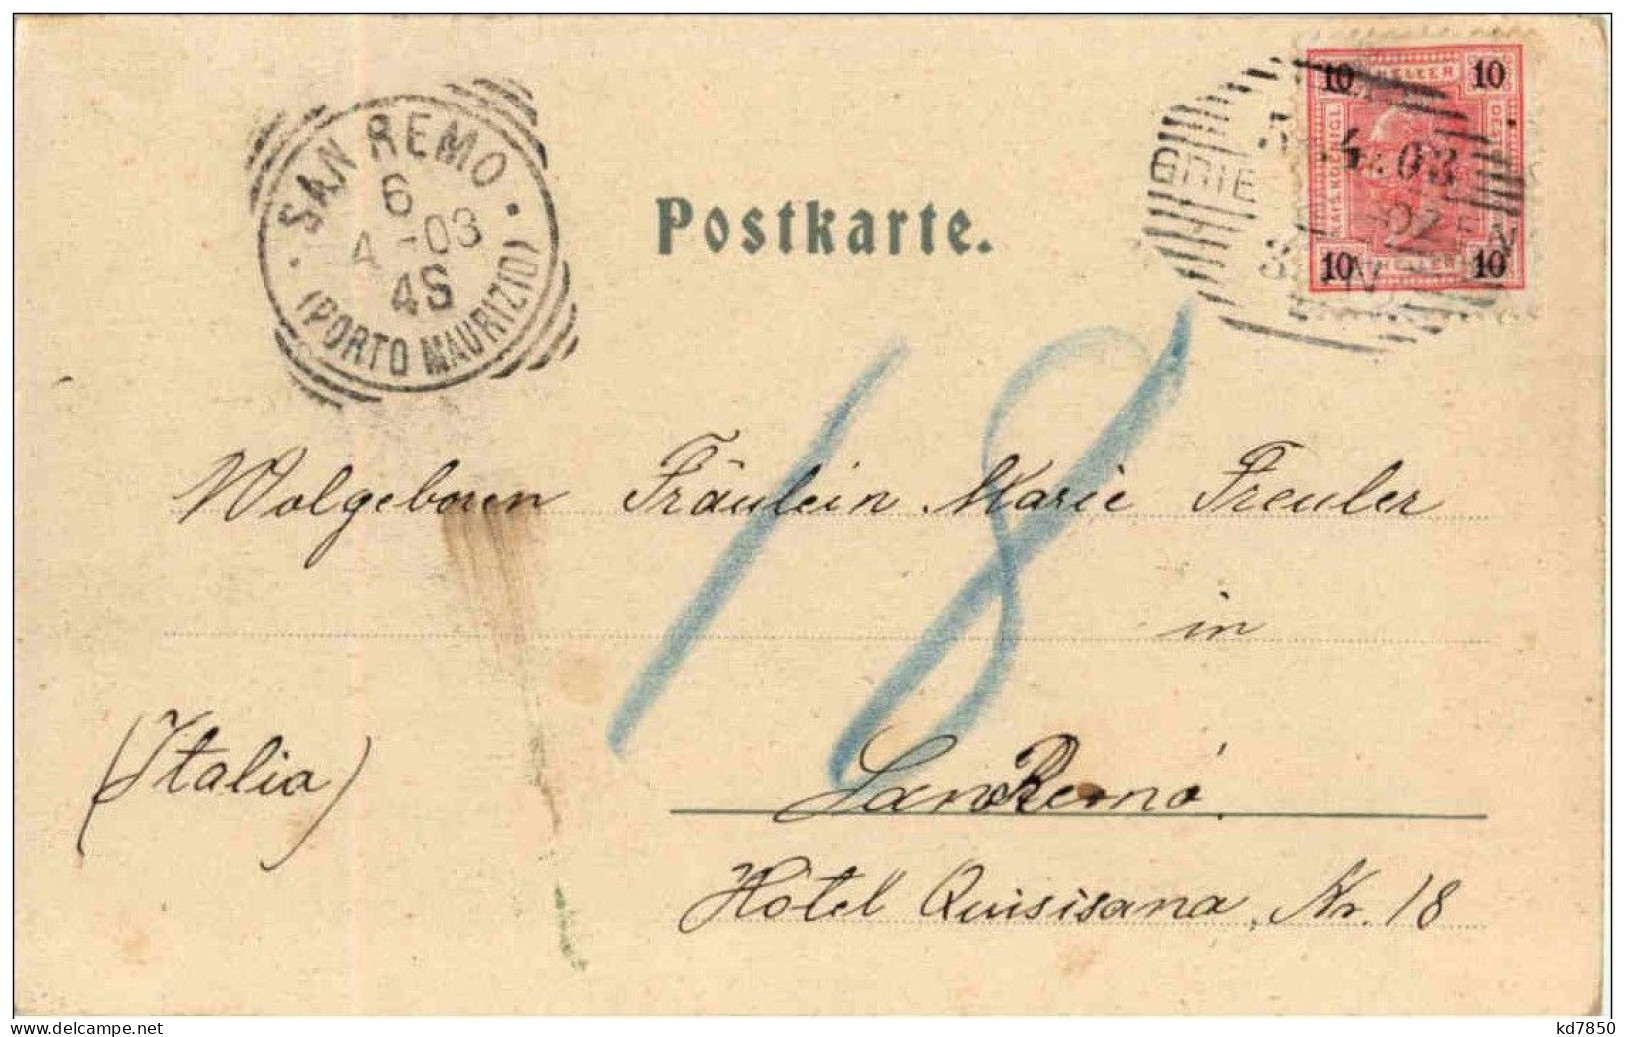 SAN REMO
6
4-03
4S
(PORTO MAURIZIO)
Postkarte.
10 HELLER 10
GRIES
03
10 HELLER 10
Wolgeboren Fräulein Marie Freuler
in
(Italia)
San Remo
Hôtel Quisisana, Nr. 18
18
www.delcampe.net
kd7850